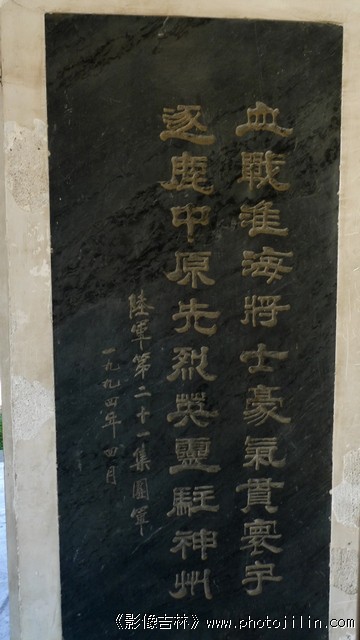 血戰淮海將士豪氣貫寰宇
逐鹿中原先烈英靈駐神州
陸軍第二十一集團軍
一九九四年四月
《影像吉林》www.photojilin.com